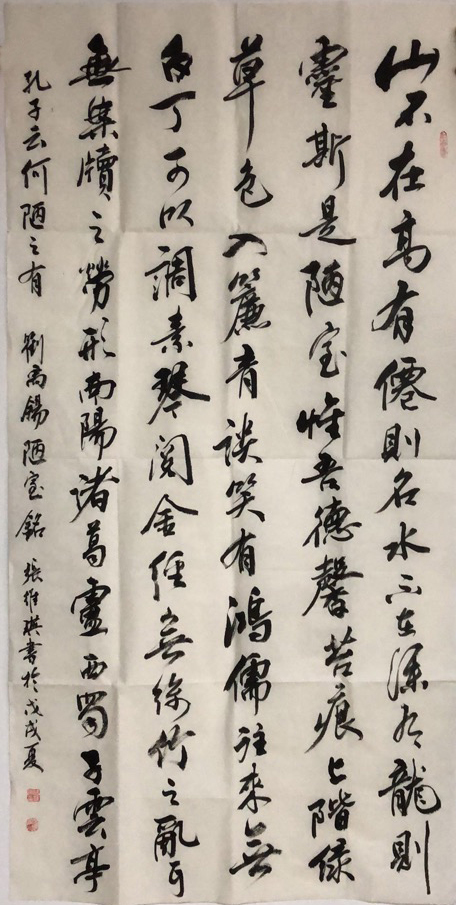 山不在高有僊則名水不在深有龍則
靈斯是陋室惟吾德馨苔痕上階緑
草色入簾青談笑有鴻儒往來無
白丁可以調素琴閲金經無絲竹之亂耳
無案牘之勞形南陽諸葛廬西蜀子雲亭
孔子云何陋之有 劉禹錫陋室銘 張維書於戊戌夏